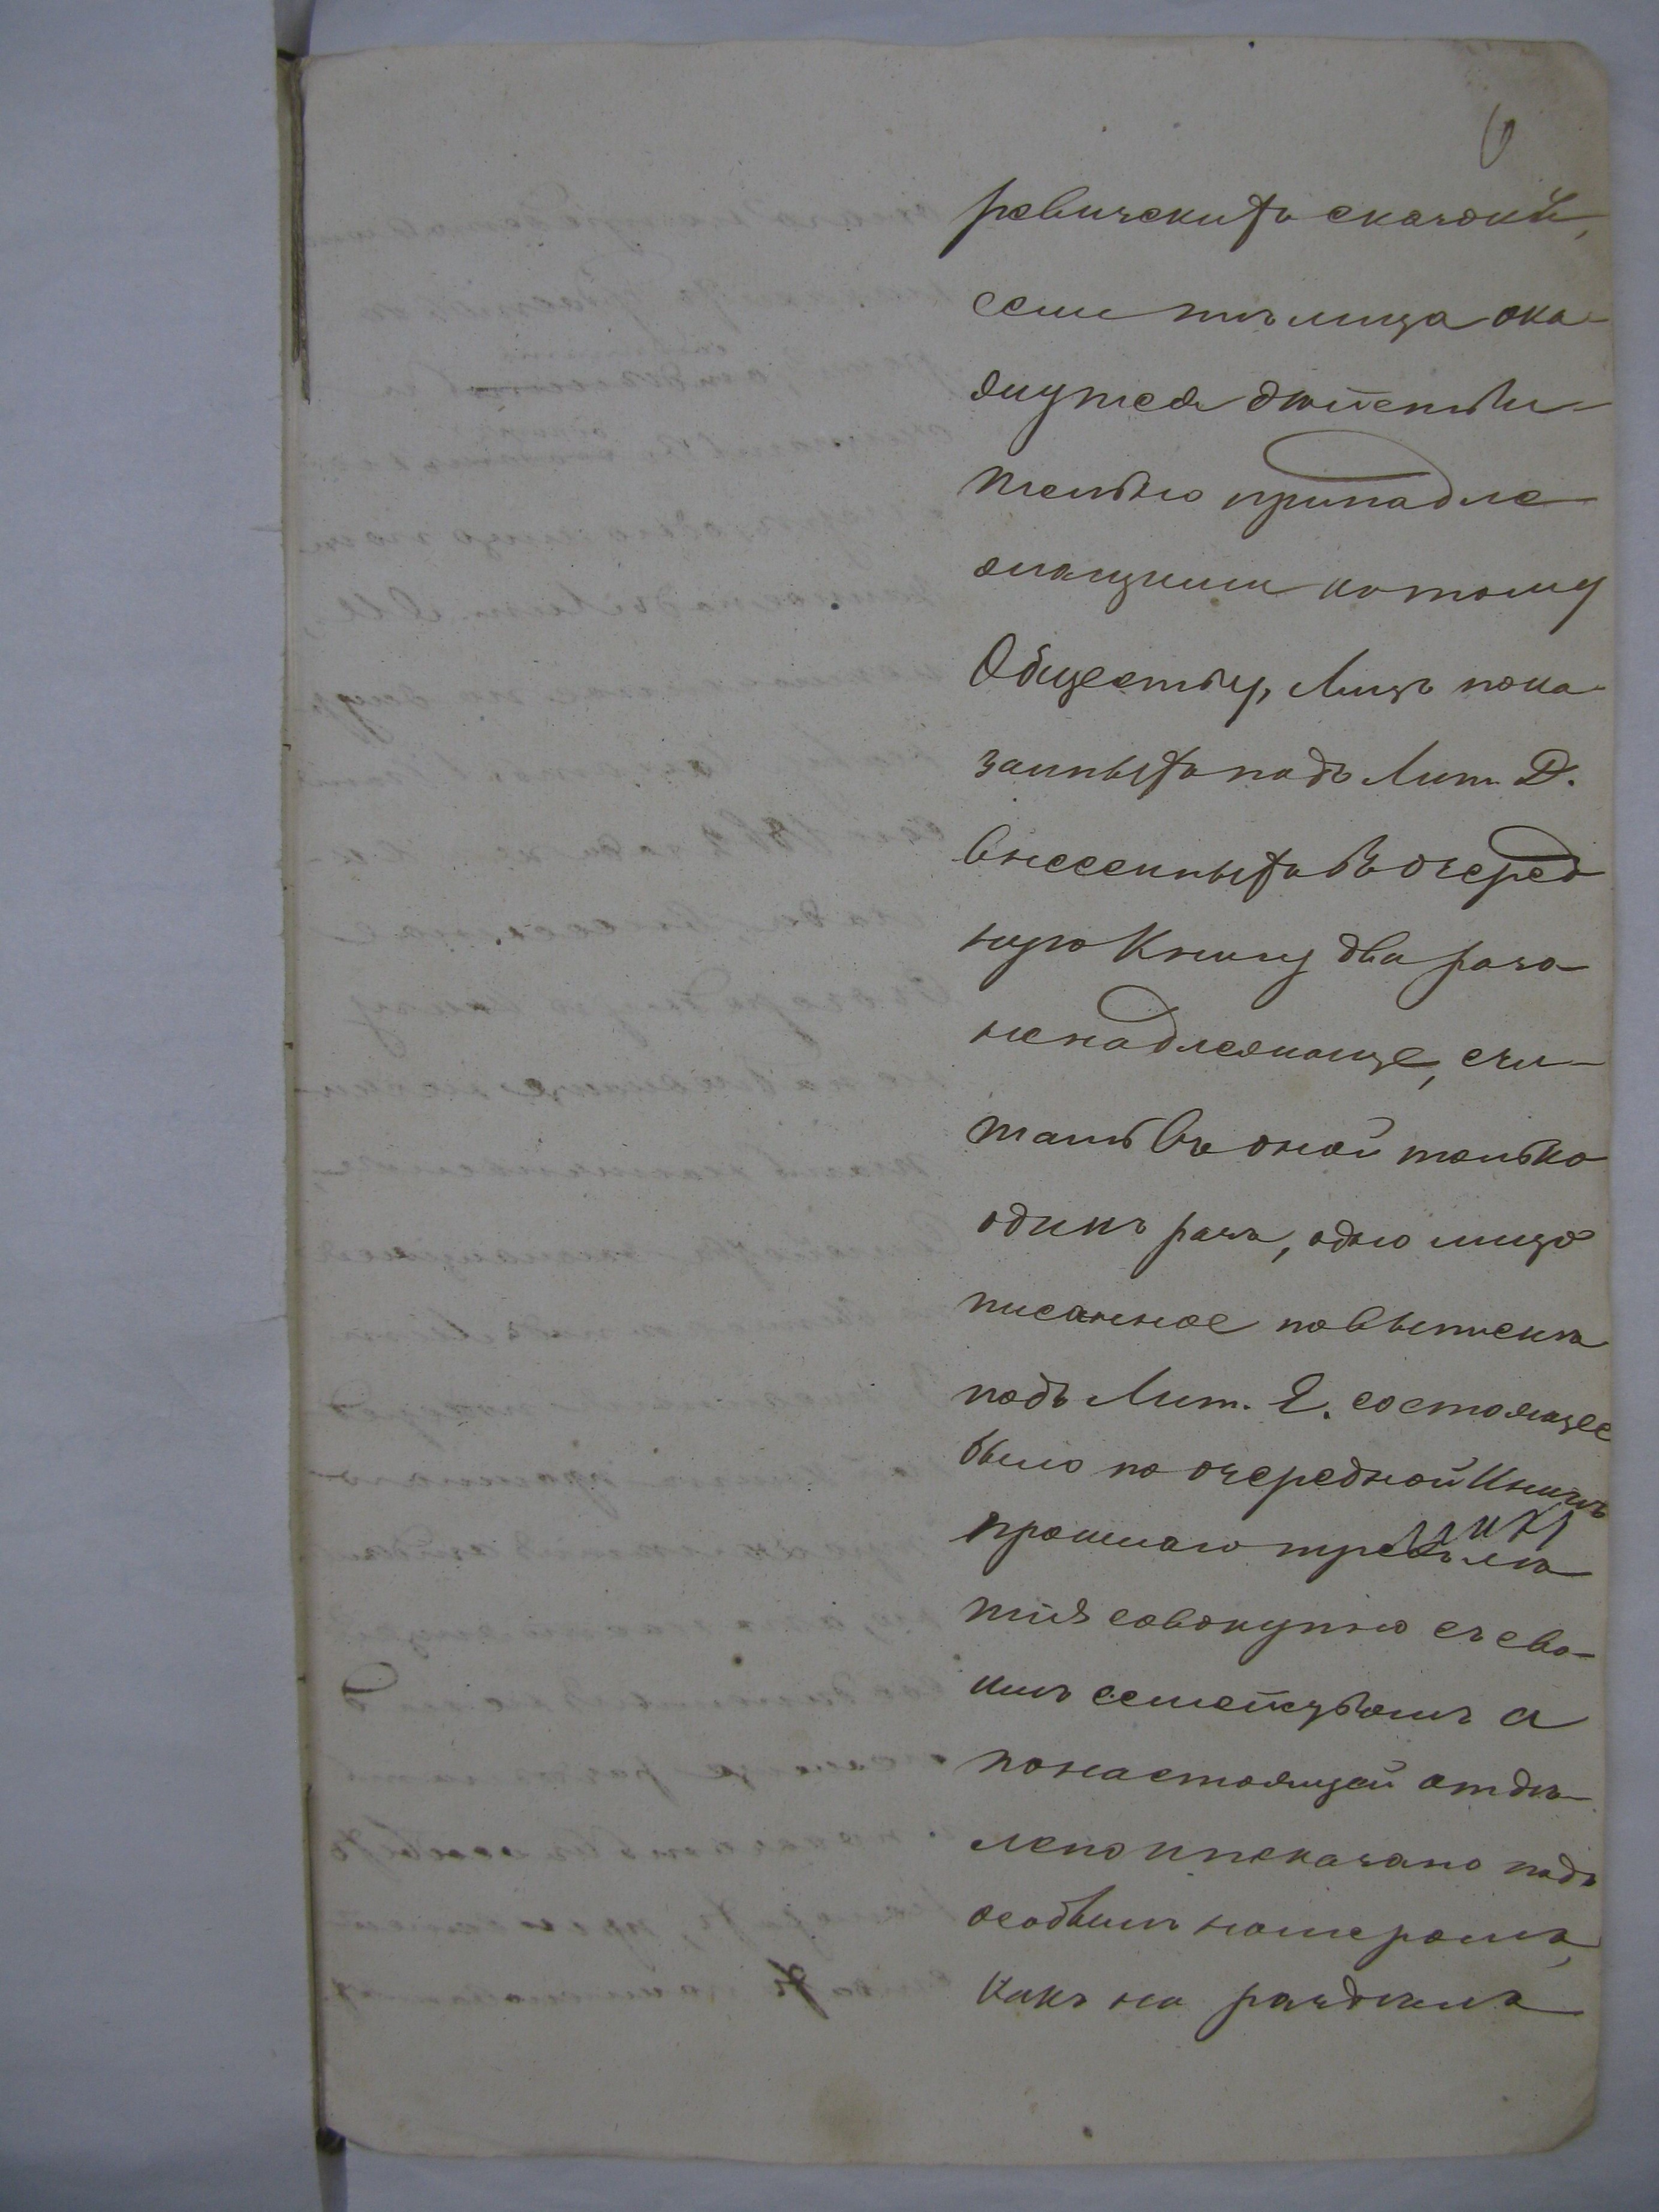 6
ревизскихъ сказокъ,
если тѣ лица ока-
жутся действи-
тельно принадле
жащими к тому
Обществу, Лицъ пока
занныхъ подъ Лит. Д.
внесенныхъ въ очеред
ную Книгу два раза
ненадлежаще, счи-
тать въ оной только
одинъ разъ, одно лицо
писанное по выписке
подъ Лит. Е. состоящее
было по очередной Книгѣ
прошлаго
тія совокупно съ сво-
имъ семействомъ а
по настоящей отдѣ-
лено и показано подъ
особымъ номеромъ,
какъ на раздѣлъ